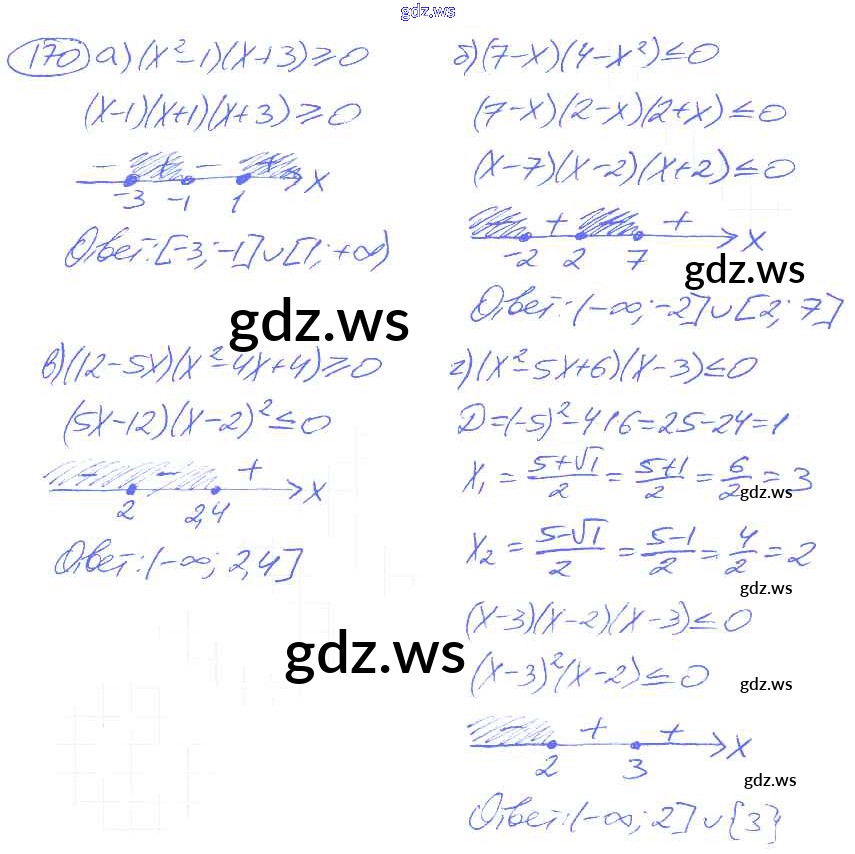 gdz.ws
170 а) (x²-1)(x+3)≥0
(x-1)(x+1)(x+3)≥0
- + - + x
-3 -1 1
Ответ: [-3;-1]∪[1;+∞)
б) (7-x)(4-x²)≤0
(7-x)(2-x)(2+x)≤0
(x-7)(x-2)(x+2)≤0
- + - + x
-2 2 7
gdz.ws
Ответ: (-∞;-2]∪[2;7]
gdz.ws
в) (12-5x)(x²-4x+4)≥0
(5x-12)(x-2)²≤0
- - + x
2 2,4
Ответ: (-∞; 2,4]
г) (x²-5x+6)(x-3)≤0
D=(-5)²-4·1·6=25-24=1
x₁ = (5+√1)/2 = (5+1)/2 = 6/2 = 3
gdz.ws
x₂ = (5-√1)/2 = (5-1)/2 = 4/2 = 2
gdz.ws
(x-3)(x-2)(x-3)≤0
gdz.ws
(x-3)²(x-2)≤0
gdz.ws
- + + x
2 3
gdz.ws
Ответ: (-∞; 2]∪{3}